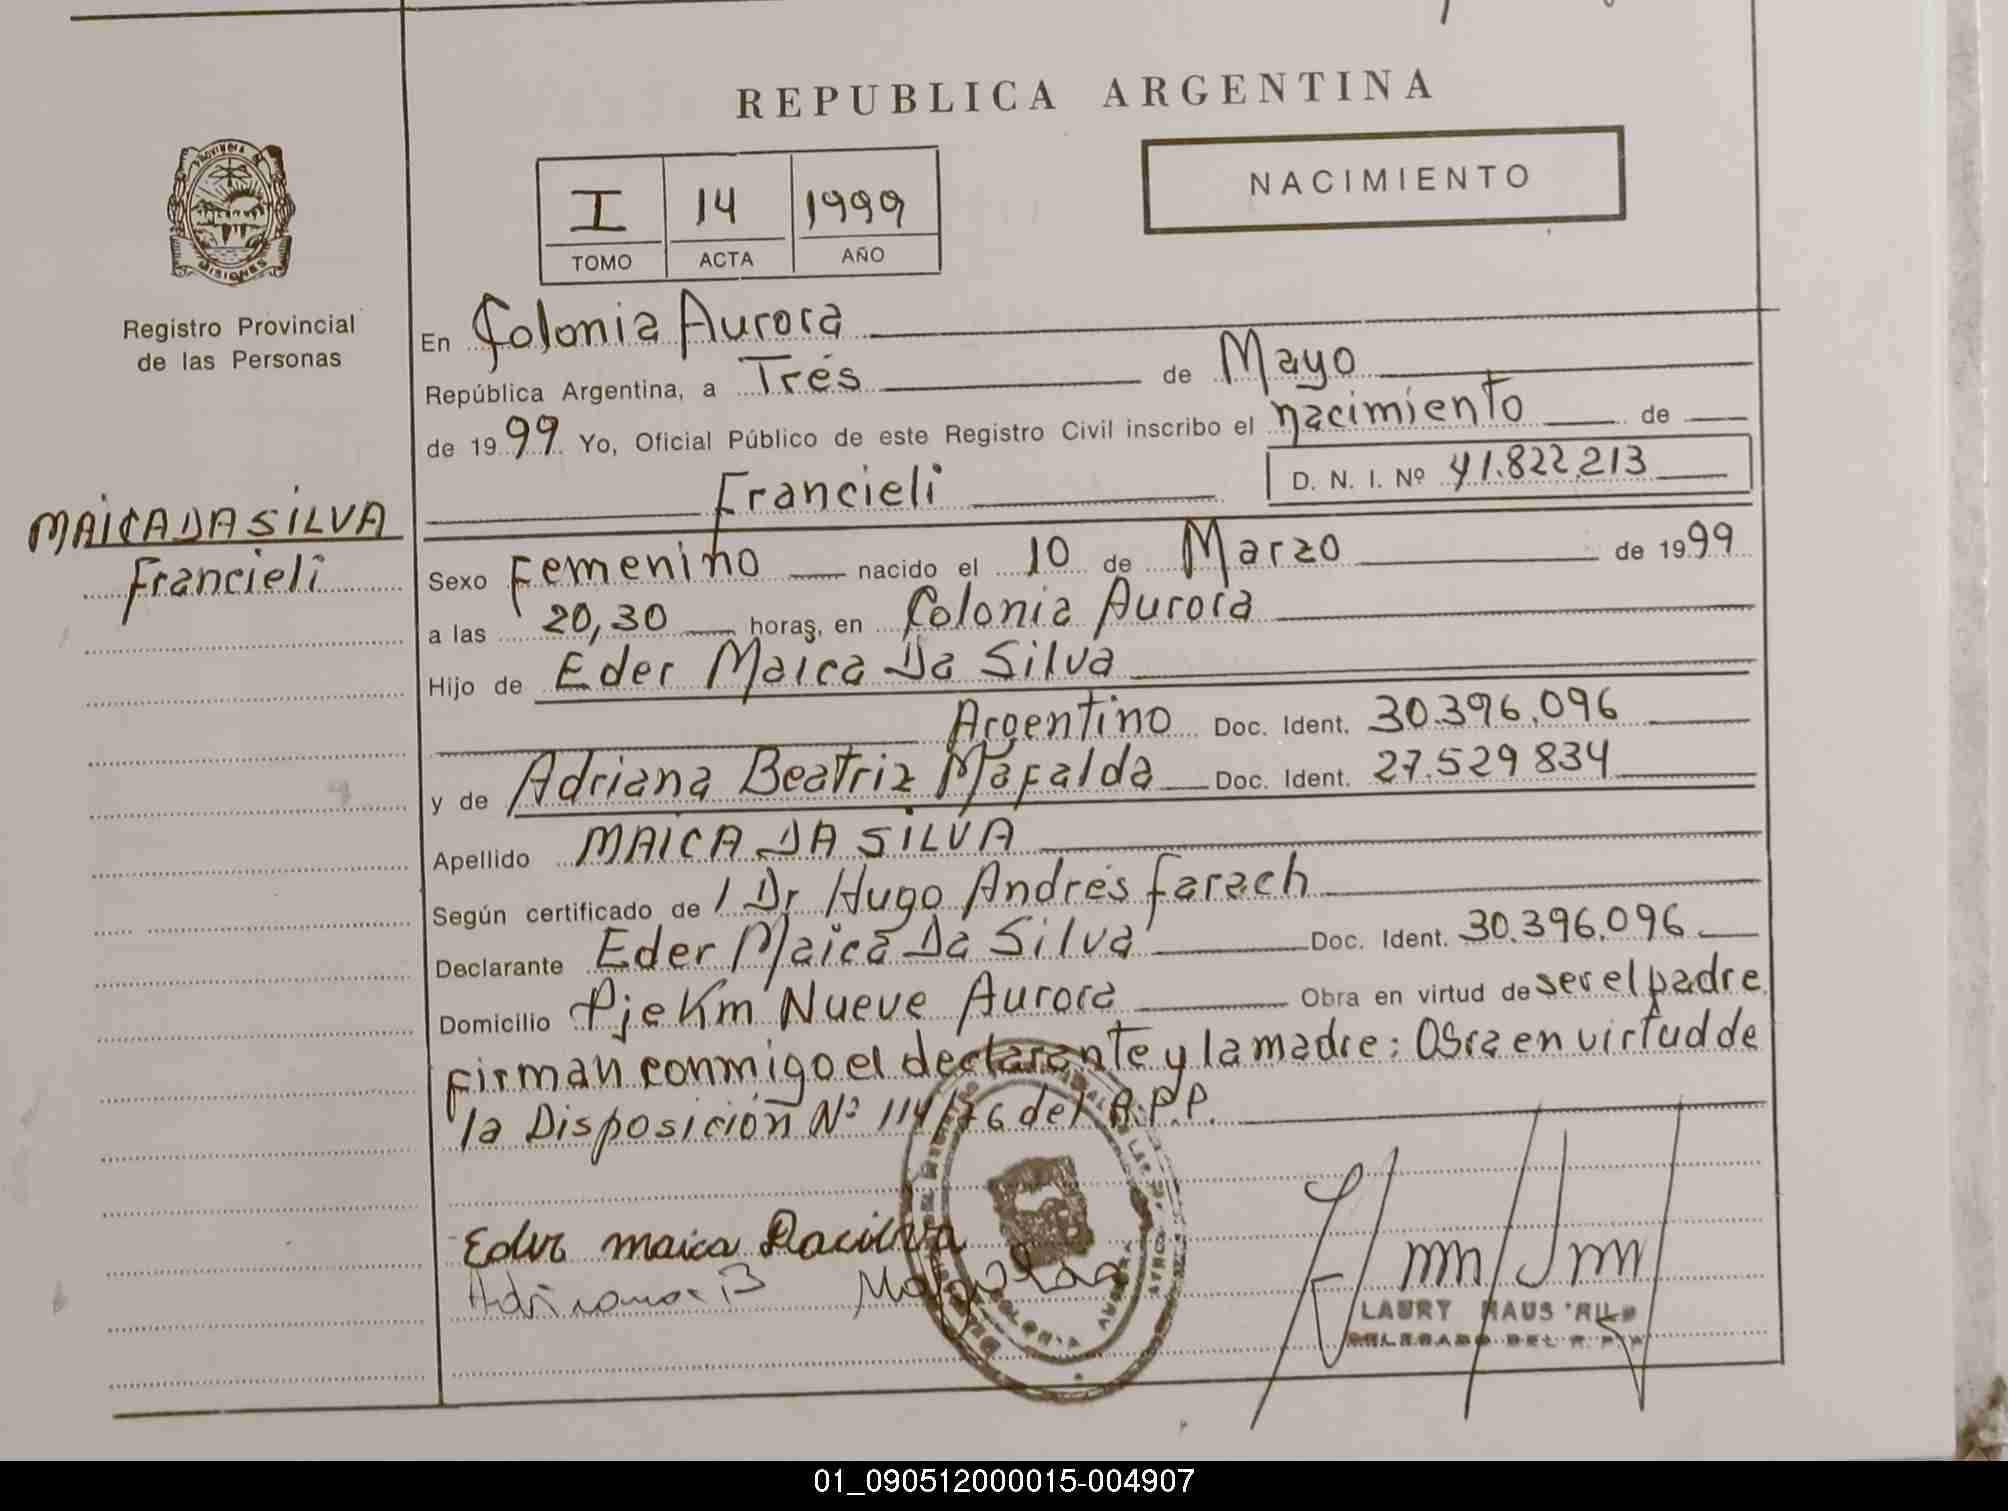 REPUBLICA ARGENTINA
PROVINCIA DE
MISIONES
Registro Provincial
de las Personas
I 14 1999
TOMO ACTA AÑO
NACIMIENTO
MAICA DA SILVA
Francieli
En Colonia Aurora
República Argentina, a Trés de Mayo
de 1999 Yo, Oficial Público de este Registro Civil inscribo el nacimiento de
Francieli D. N. I. Nº 41.822.213
Sexo Femenino nacido el 10 de Marzo de 1999
a las 20,30 horas, en Colonia Aurora
Hijo de Eder Maica Da Silva
Argentino Doc. Ident. 30.396.096
y de Adriana Beatriz Mafalda Doc. Ident. 27.529834
Apellido MAICA DA SILVA
Según certificado de / Dr Hugo Andrés Farach
Declarante Eder Maica Da Silva Doc. Ident. 30.396.096
Domicilio Pje Km Nueve Aurora Obra en virtud de ser el padre
Firman conmigo el declarante y la madre: Obra en virtud de
la Disposición Nº 114/76 del R.P.P.
Eder maica Dacilva
Adriana B Mafalda
LAURY HAUS
DELEGADO DEL R.P.P.
COLONIA AURORA
01_090512000015-004907